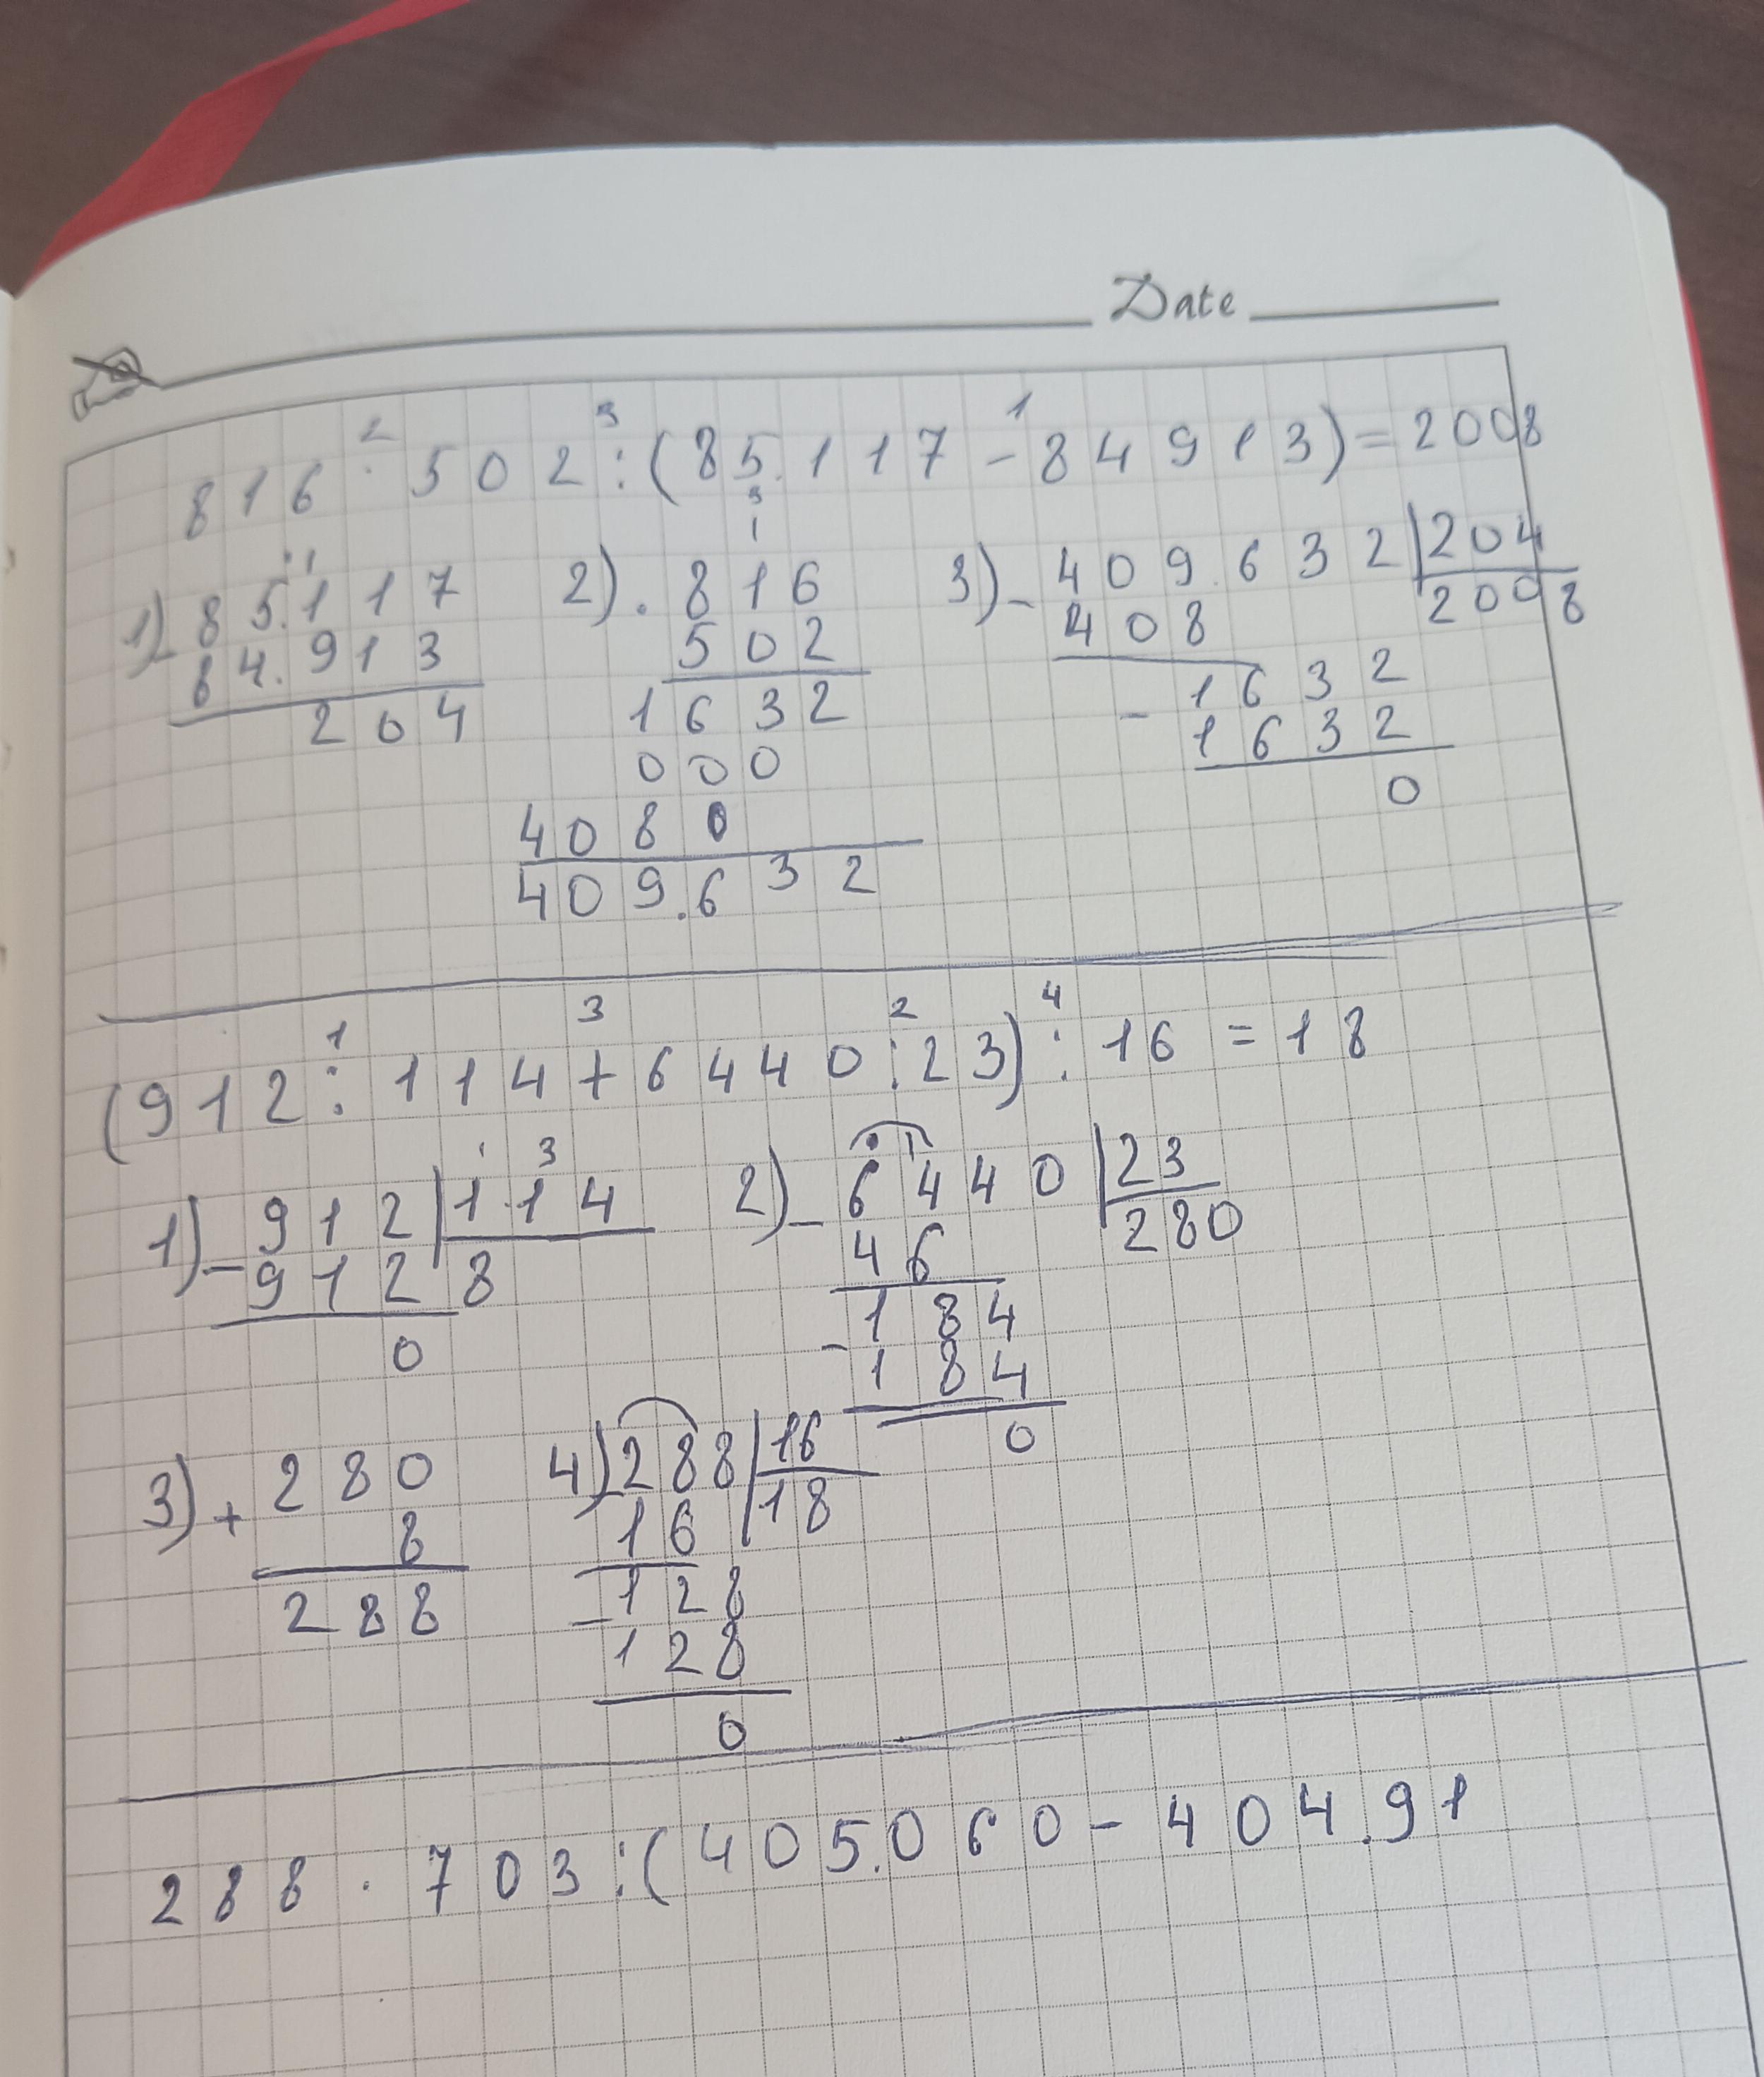 Date
2 3 1
816 · 502 : (85.117 - 84913) = 2008
1) - 85.117
84.913
204
2) · 816
502
1632
000
4080
409.632
3) - 409.632 | 204
408 2008
- 1632
1632
0
1 3 2 4
(912 : 114 + 6440 : 23) : 16 = 18
1) - 912 | 114
912 8
0
2) - 6440 | 23
46 280
184
- 184
0
3) + 280
8
288
4) 288 | 16
16 18
- 128
128
0
288 · 703 : (405.060 - 404.91